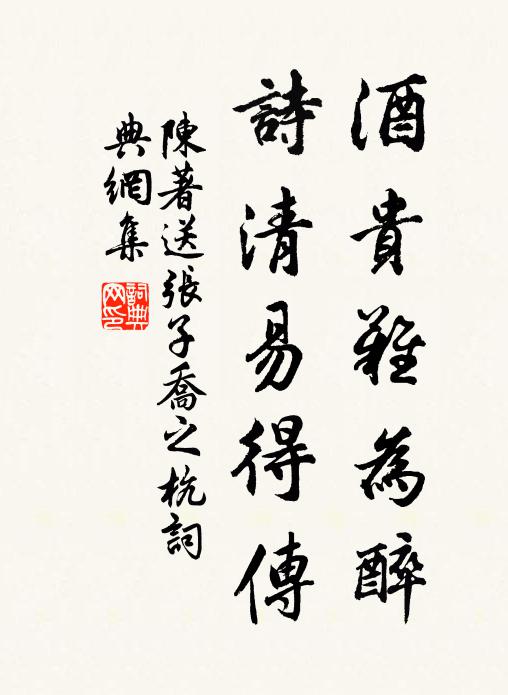 酒貴難為醉
詩清易得傳
陳著送張子喬之杭詞
典網集
詞典網印